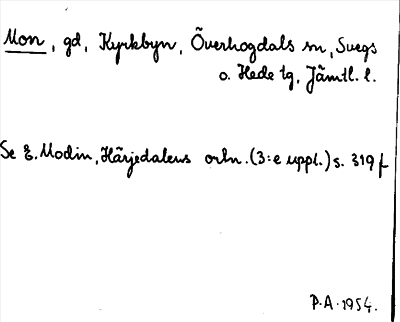 Mon, gd, Kyrkbyn, Överhogdals sn, Svegs
o. Hede tg, Jämtl. l.
Se E. Modin, Härjedalens ortn. (3:e uppl.) s. 319 f
P.A. 1954.